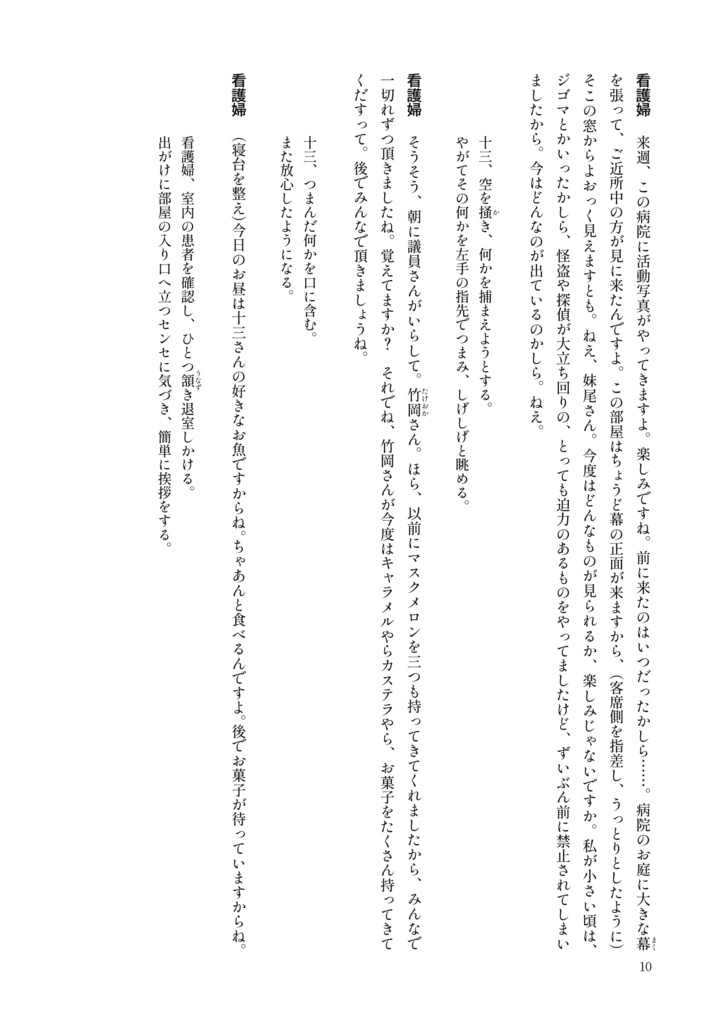 看護婦　来週、この病院に活動写真がやってきますよ。楽しみですね。前に来たのはいつだったかしら……。病院のお庭に大きな幕
を張って、ご近所中の方が見に来たんですよ。この部屋はちょうど幕の正面が来ますから、（客席側を指差し、うっとりとしたように）
そこの窓からよおっく見えますとも。ねえ、妹尾さん。今度はどんなものが見られるか、楽しみじゃないですか。私が小さい頃は、
ジゴマとかいったかしら、怪盗や探偵が大立ち回りの、とっても迫力のあるものをやってましたけど、ずいぶん前に禁止されてしまい
ましたから。今はどんなのが出ているのかしら。ねえ。
十三、空を掻き、何かを捕まえようとする。
やがてその何かを左手の指先でつまみ、しげしげと眺める。
看護婦　そうそう、朝に議員さんがいらして。竹岡さん。ほら、以前にマスクメロンを三つも持ってきてくれましたから、みんなで
一切れずつ頂きましたね。覚えてますか？　それでね、竹岡さんが今度はキャラメルやらカステラやら、お菓子をたくさん持ってきて
くだすって。後でみんなで頂きましょうね。
十三、つまんだ何かを口に含む。
また放心したようになる。
看護婦　（寝台を整え）今日のお昼は十三さんの好きなお魚ですからね。ちゃあんと食べるんですよ。後でお菓子が待っていますからね。
看護婦、室内の患者を確認し、ひとつ頷き退室しかける。
出がけに部屋の入り口へ立つセンセに気づき、簡単に挨拶をする。
10